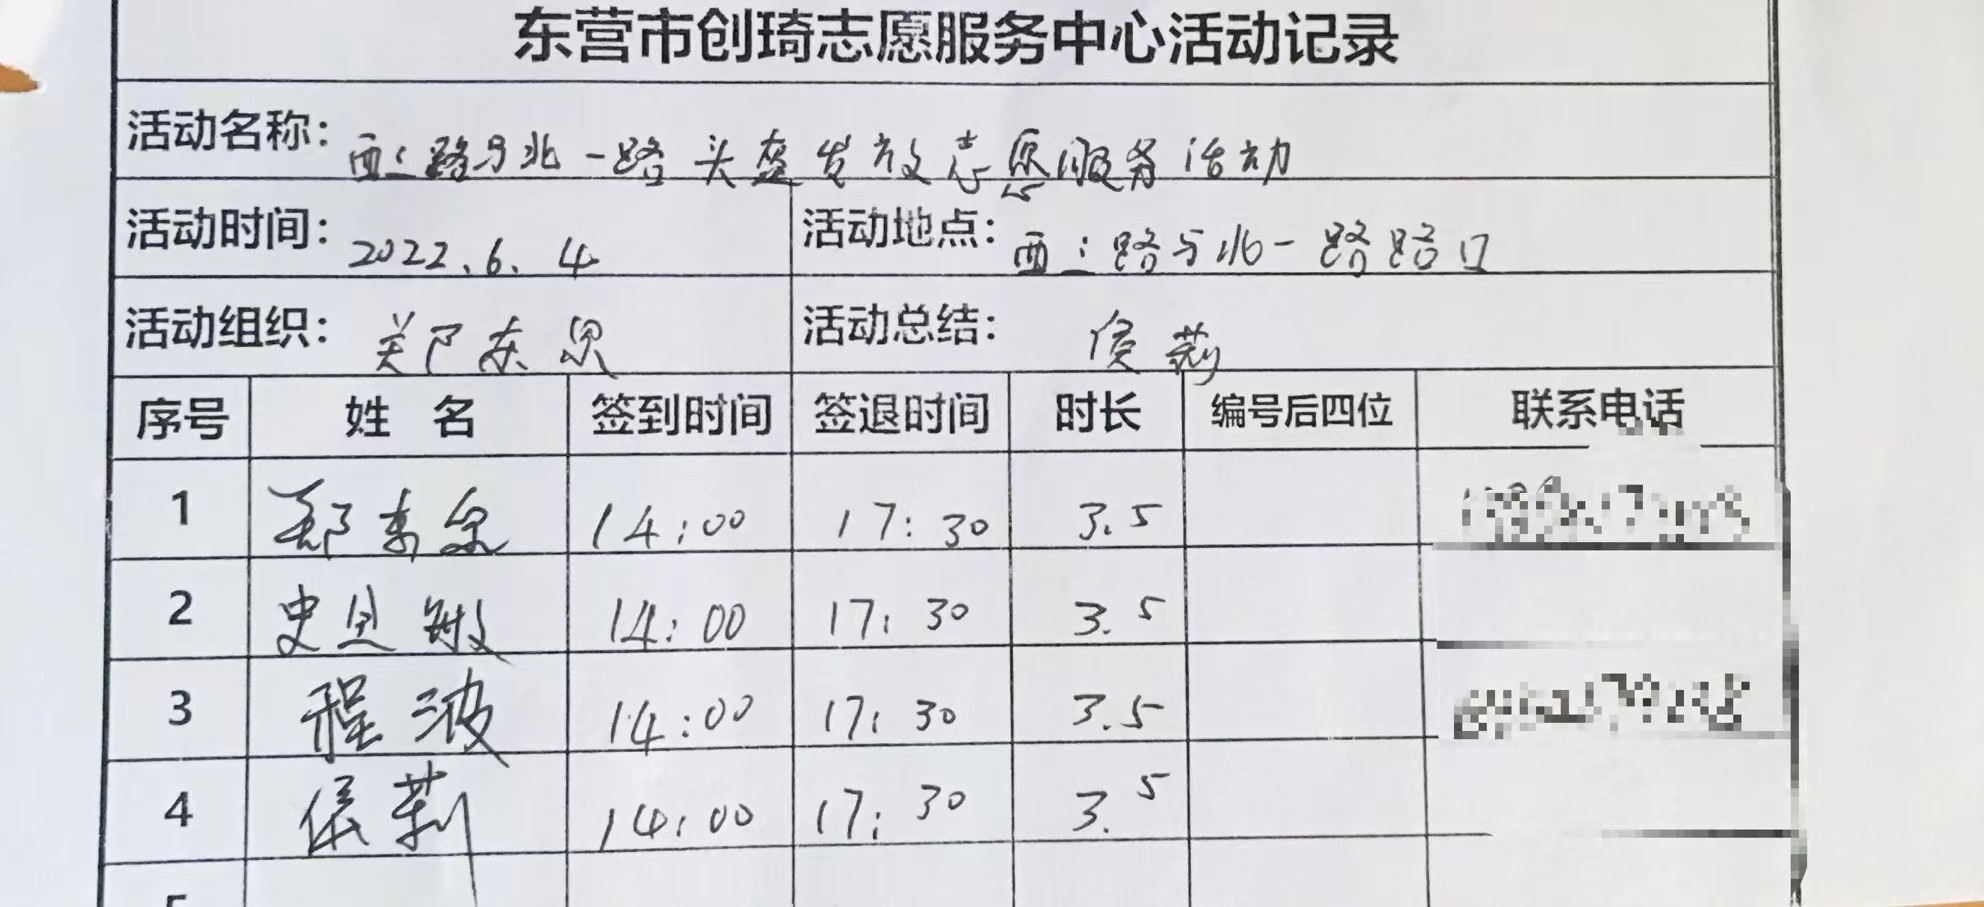 东营市创琦志愿服务中心活动记录
活动名称: 西二路与北一路头盔发放志愿服务活动
活动时间: 2022.6.4 活动地点: 西二路与北一路路口
活动组织: 郑东泉 活动总结: 侯莉
序号 姓名 签到时间 签退时间 时长 编号后四位 联系电话
1 郑东泉 14:00 17:30 3.5
2 史 敏 14:00 17:30 3.5
3 程波 14:00 17:30 3.5
4 侯莉 14:00 17:30 3.5